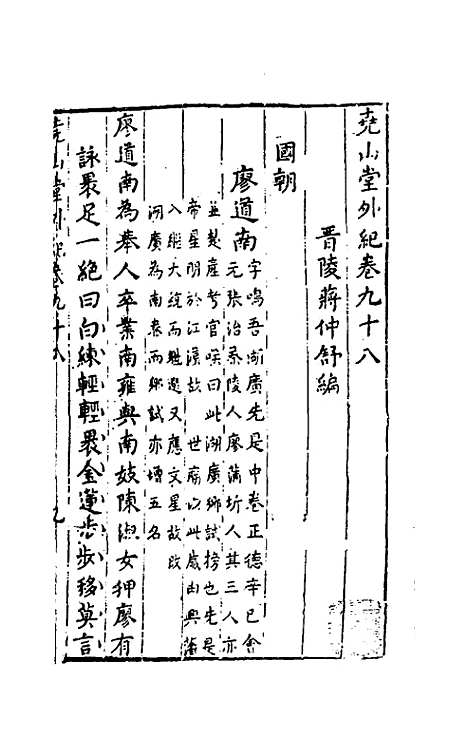 堯山堂外紀卷九十八
晉陵蔣仲舒編
國朝
廖道南
字鳴吾湖廣先是中卷正德辛巳會
元張治茶陵人廖蒲圻人其三人亦
並楚産考官嘆曰此湖廣鄉試榜也先是
帝星明於江漢故 世廟以此歲由興藩
入繼大統而魁選又應文星故改
湖廣為南卷而鄉試亦增五名
廖道南為舉人卒業南雍與南妓陳淑女狎廖有
詠裹足一絕曰白練輕輕裹金蓮步步移莫言
堯山堂外紀卷九十八